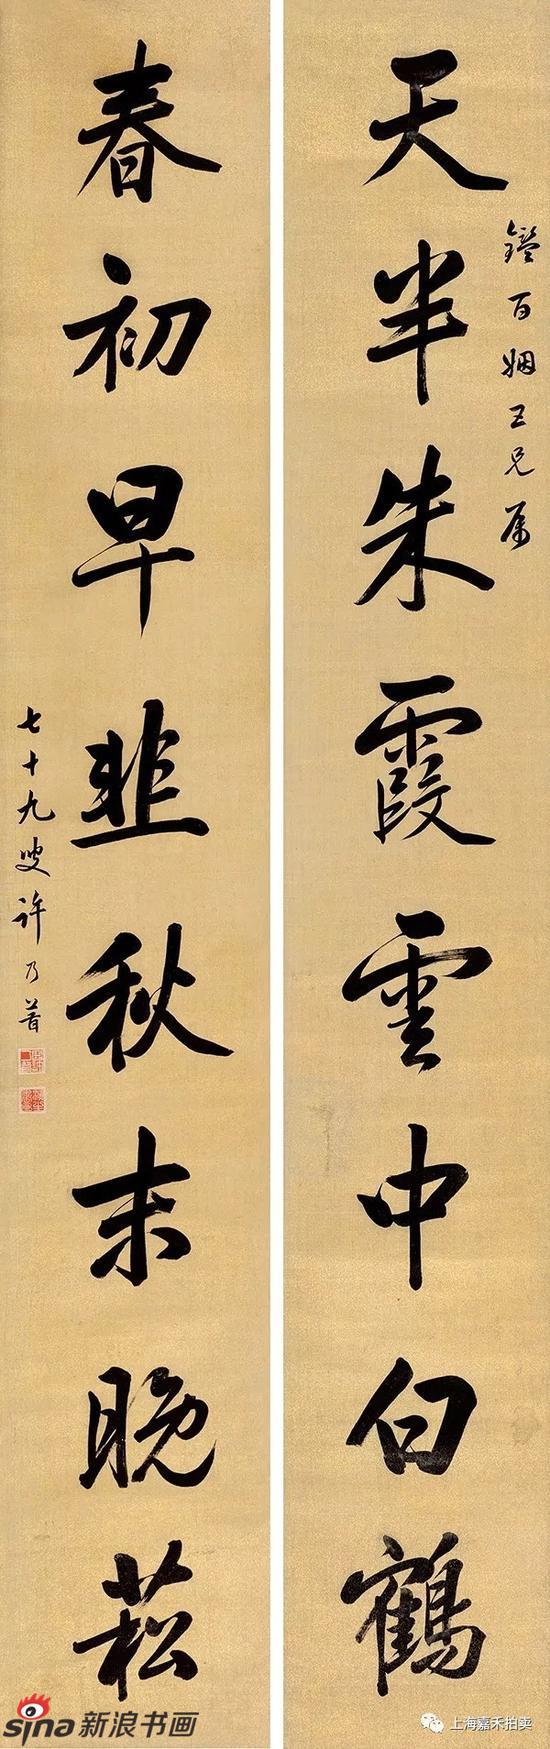 天半朱霞雲中白鶴
鑑百姻五兄屬
春初早韭秋末晚菘
七十九叟許乃普
sina新浪书画
上海嘉禾拍卖